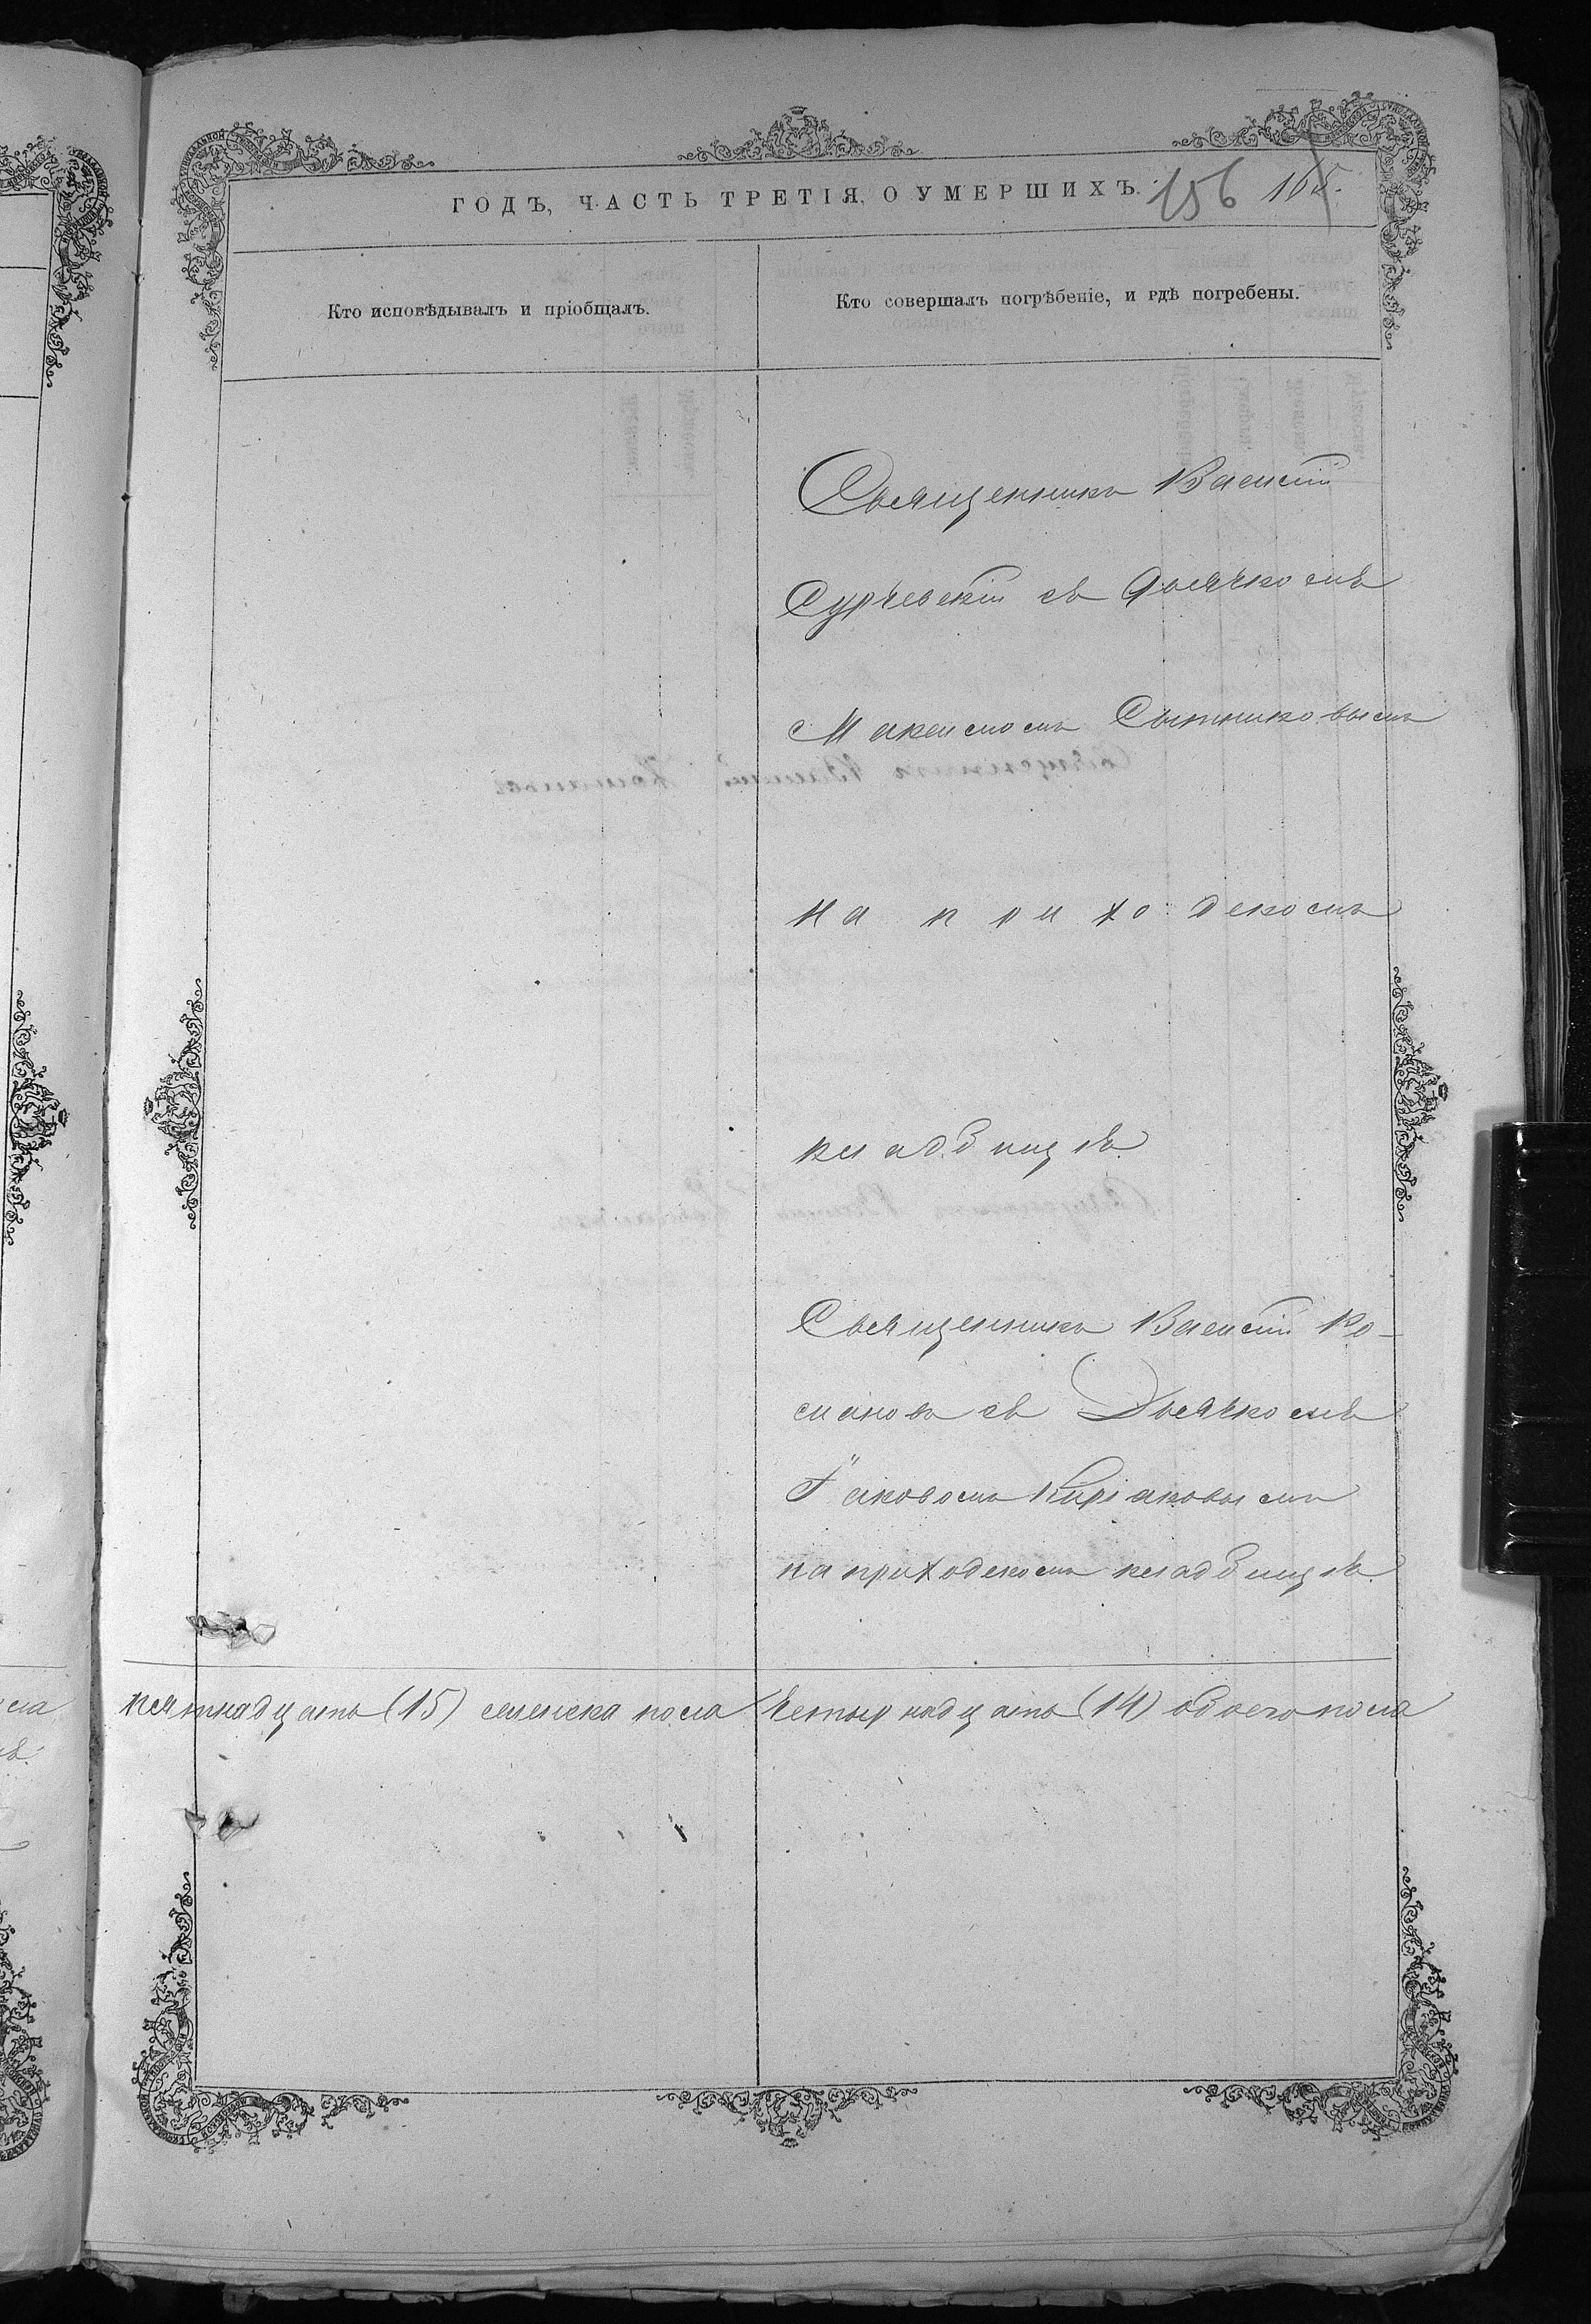 ГОДЪ, ЧАСТЬ ТРЕТІЯ, О УМЕРШИХЪ. 156 165.
Кто исповѣдывалъ и пріобщалъ.
Кто совершалъ погрѣбеніе, и гдѣ погребены.
Священникъ Василій
Сурчевскій съ Дьячкомъ
Максимомъ Сытниковымъ
на приходскомъ
кладбищѣ
Священникъ Василій Ро-
мановъ съ Дьячкомъ
Іаковомъ Киріаковымъ
на приходскомъ кладбищѣ.
пятнадцать (15) женска пола четырнадцать (14) обоего пола